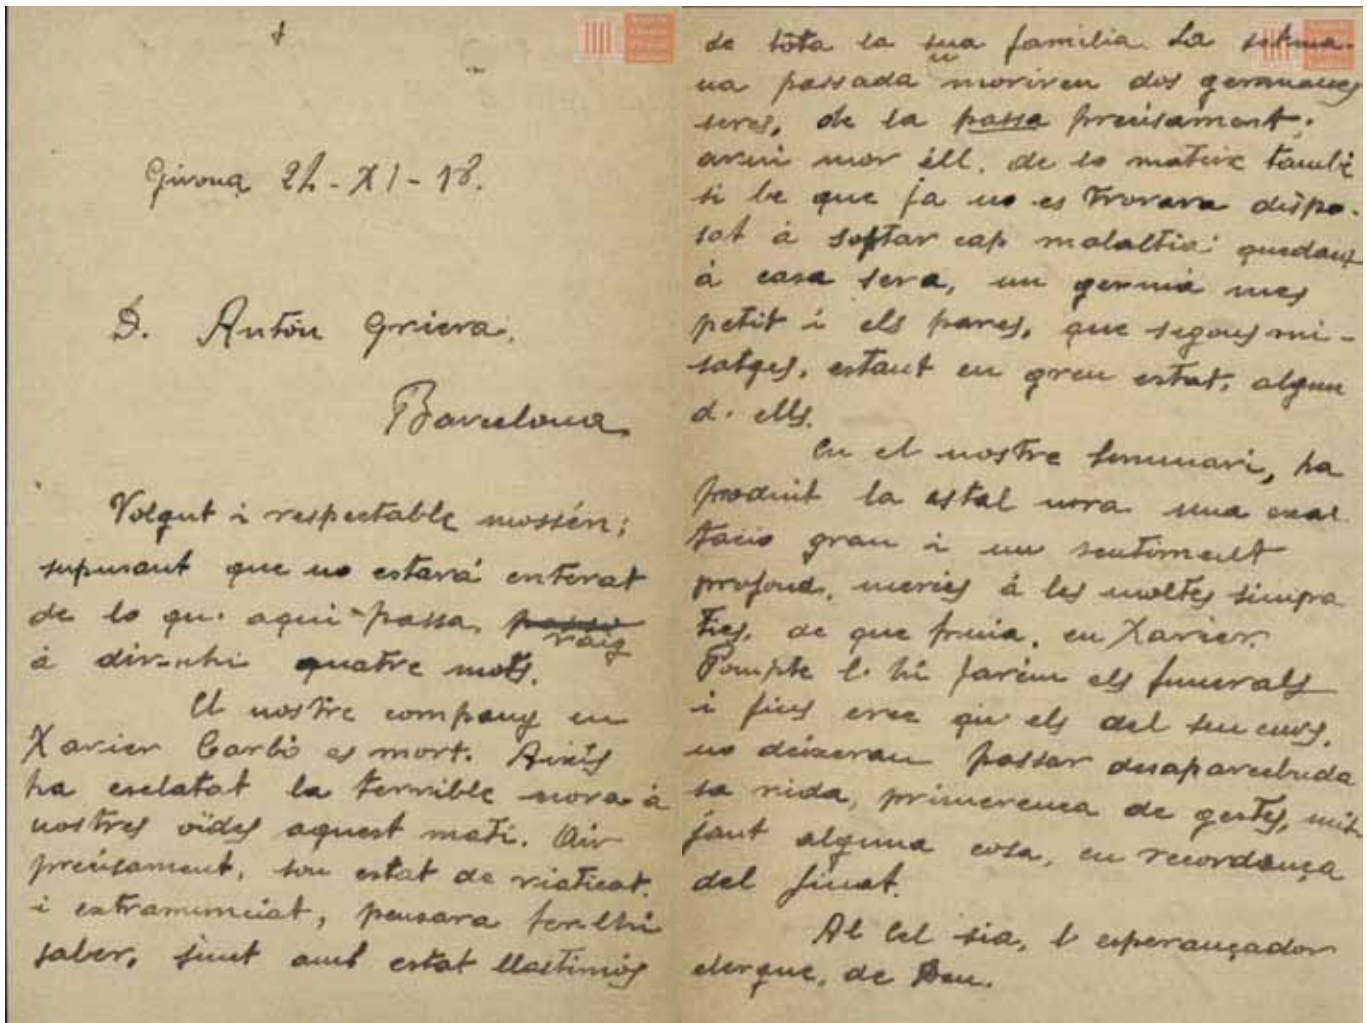 Girona 24-XI-18.
D. Antón Griera.
Barcelona.
Volgut i respectable mossén;
supusant que no estará enterat
de lo qu. aqui passa, passo
vaig
á dir-nhi quatre mots.
El nostre company en
Xavier Carbó es mort. Aixís
ha esclatat la terrible nova á
nostres oïdes aquest matí. Air
precisament, son estat de viaticat
i extramunciat, pensava fer-lhi
saber, junt amb estat llastimós
de tota la sua familia. La setma-
na passada moriren dos germanes
seves, de la passa precisament;
avui mor éll, de lo mateix també
si be que ja no es trovava dispo-
sat á soptar cap malaltia: quedant
á casa seva, un germá mes
petit i els pares, que segons mi-
satges, estant en greu estat, algun
d. ells.
En el nostre Seminari, ha
produit la aital nova una exal
tació gran i un sentiment
profond, mercés á les moltes simpa
ties, de que fruia, en Xavier.
Pompte l. hi farém els funerals
i fins crec qu els del seu curs,
no deixeran passar desaparcebuda
sa vida, primerenca de gestes, mit-
jant alguna cosa, en recordança
del finat.
Al Cel sia, l esperançador
clergue, de Deu.